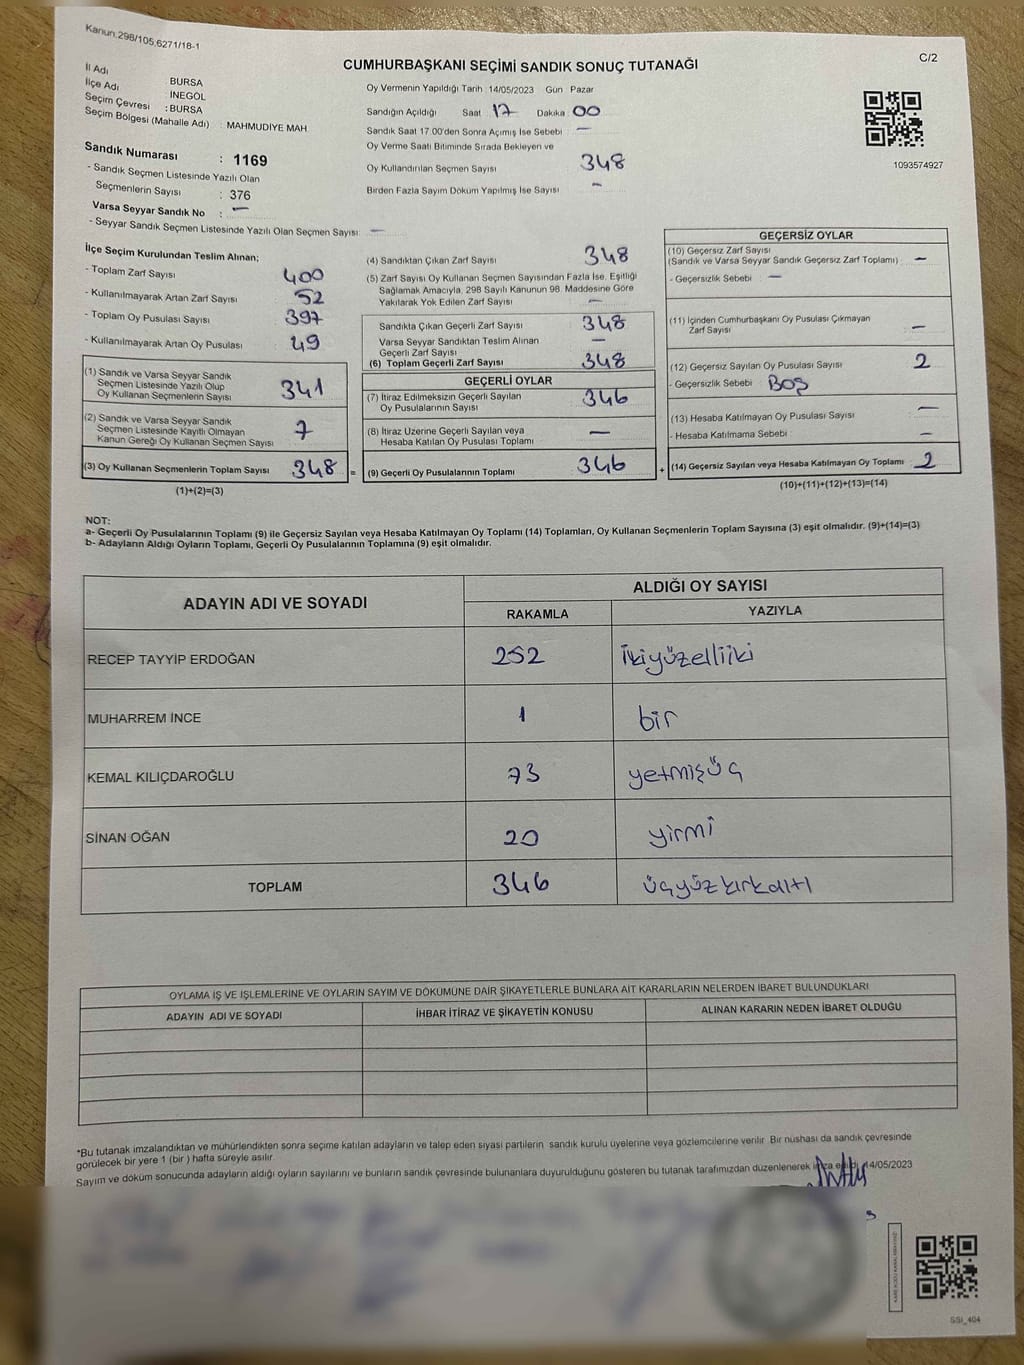 Kanun:298/105,6271/18-1
C/2
CUMHURBAŞKANI SEÇİMİ SANDIK SONUÇ TUTANAĞI
İl Adı BURSA
İlçe Adı İNEGÖL
Seçim Çevresi : BURSA
Seçim Bölgesi (Mahalle Adı) : MAHMUDİYE MAH
Sandık Numarası : 1169
- Sandık Seçmen Listesinde Yazılı Olan
Seçmenlerin Sayısı : 376
Varsa Seyyar Sandık No : —
- Seyyar Sandık Seçmen Listesinde Yazılı Olan Seçmen Sayısı: —
Oy Vermenin Yapıldığı Tarih :14/05/2023 Gün Pazar
Sandığın Açıldığı Saat 17 Dakika : 00
Sandık Saat 17.00'den Sonra Açımış İse Sebebi —
Oy Verme Saati Bitiminde Sırada Bekleyen ve
Oy Kullandırılan Seçmen Sayısı 348
Birden Fazla Sayım Döküm Yapılmış İse Sayısı —
1093574927
İlçe Seçim Kurulundan Teslim Alınan;
- Toplam Zarf Sayısı 400
- Kullanılmayarak Artan Zarf Sayısı 52
- Toplam Oy Pusulası Sayısı 397
- Kullanılmayarak Artan Oy Pusulası 49
(1) Sandık ve Varsa Seyyar Sandık
Seçmen Listesinde Yazılı Olup
Oy Kullanan Seçmenlerin Sayısı 341
(2) Sandık ve Varsa Seyyar Sandık
Seçmen Listesinde Kayıtlı Olmayan
Kanun Gereği Oy Kullanan Seçmen Sayısı 7
(3) Oy Kullanan Seçmenlerin Toplam Sayısı 348 =
(1)+(2)=(3)
(4) Sandıktan Çıkan Zarf Sayısı 348
(5) Zarf Sayısı Oy Kullanan Seçmen Sayısından Fazla İse, Eşitliği
Sağlamak Amacıyla, 298 Sayılı Kanunun 98. Maddesine Göre
Yakılarak Yok Edilen Zarf Sayısı —
Sandıkta Çıkan Geçerli Zarf Sayısı 348
Varsa Seyyar Sandıktan Teslim Alınan
Geçerli Zarf Sayısı —
(6) Toplam Geçerli Zarf Sayısı 348
GEÇERLİ OYLAR
(7) İtiraz Edilmeksizin Geçerli Sayılan
Oy Pusulalarının Sayısı 346
(8) İtiraz Üzerine Geçerli Sayılan veya
Hesaba Katılan Oy Pusulası Toplamı —
(9) Geçerli Oy Pusulalarının Toplamı 346 +
GEÇERSİZ OYLAR
(10) Geçersiz Zarf Sayısı
(Sandık ve Varsa Seyyar Sandık Geçersiz Zarf Toplamı) : —
- Geçersizlik Sebebi : —
(11) İçinden Cumhurbaşkanı Oy Pusulası Çıkmayan
Zarf Sayısı —
(12) Geçersiz Sayılan Oy Pusulası Sayısı 2
- Geçersizlik Sebebi : BOŞ
(13) Hesaba Katılmayan Oy Pusulası Sayısı —
- Hesaba Katılmama Sebebi : —
(14) Geçersiz Sayılan veya Hesaba Katılmayan Oy Toplamı 2
(10)+(11)+(12)+(13)=(14)
NOT:
a- Geçerli Oy Pusulalarının Toplamı (9) ile Geçersiz Sayılan veya Hesaba Katılmayan Oy Toplamı (14) Toplamları, Oy Kullanan Seçmenlerin Toplam Sayısına (3) eşit olmalıdır. (9)+(14)=(3)
b- Adayların Aldığı Oyların Toplamı, Geçerli Oy Pusulalarının Toplamına (9) eşit olmalıdır.
ADAYIN ADI VE SOYADI
ALDIĞI OY SAYISI
RAKAMLA YAZIYLA
RECEP TAYYİP ERDOĞAN 252 ikiyüzelliiki
MUHARREM İNCE 1 bir
KEMAL KILIÇDAROĞLU 73 yetmişüç
SİNAN OĞAN 20 yirmi
TOPLAM 346 üçyüzkırkaltı
OYLAMA İŞ VE İŞLEMLERİNE VE OYLARIN SAYIM VE DÖKÜMÜNE DAİR ŞİKAYETLERLE BUNLARA AİT KARARLARIN NELERDEN İBARET BULUNDUKLARI
ADAYIN ADI VE SOYADI İHBAR İTİRAZ VE ŞİKAYETİN KONUSU ALINAN KARARIN NEDEN İBARET OLDUĞU
*Bu tutanak imzalandıktan ve mühürlendikten sonra seçime katılan adayların ve talep eden siyasi partilerin sandık kurulu üyelerine veya gözlemcilerine verilir. Bir nüshası da sandık çevresinde
görülecek bir yere 1 (bir ) hafta süreyle asılır.
Sayım ve döküm sonucunda adayların aldığı oyların sayılarını ve bunların sandık çevresinde bulunanlara duyurulduğunu gösteren bu tutanak tarafımızdan düzenlenerek imza edildi. 14/05/2023
SSI_404